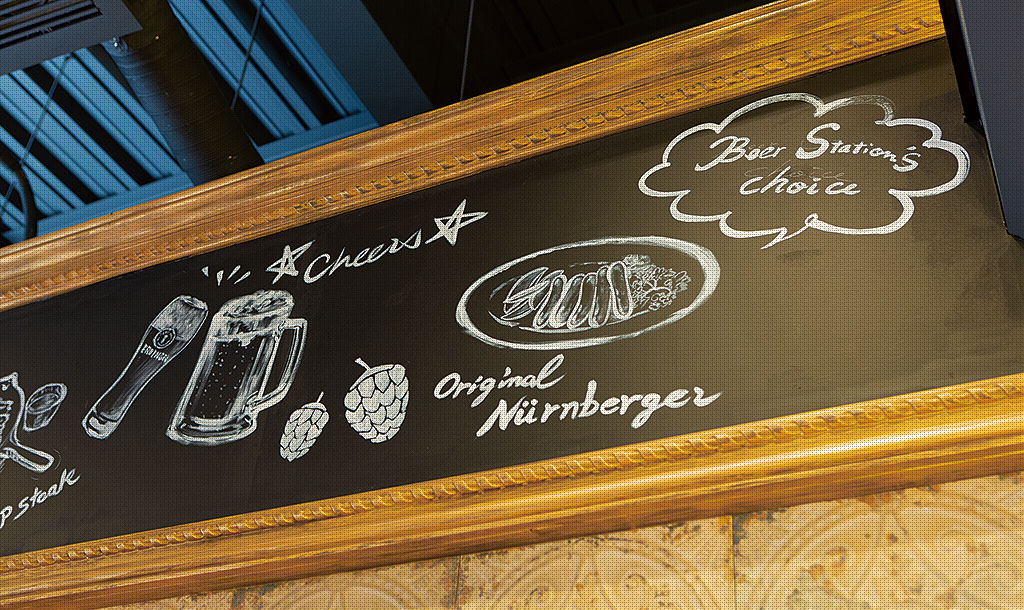 Beer Station's
choice
Cheers
Original
Nürnberger
p steak